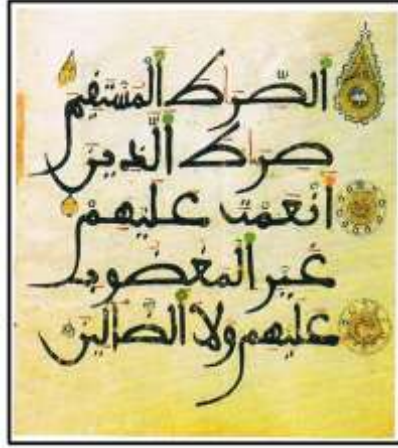 ٱلصِّرَٰطَ ٱلْمُسْتَقِيمَ
صِرَٰطَ ٱلَّذِينَ
أَنْعَمْتَ عَلَيْهِمْ
غَيْرِ ٱلْمَغْضُوبِ
عَلَيْهِمْ وَلَا ٱلضَّالِّينَ